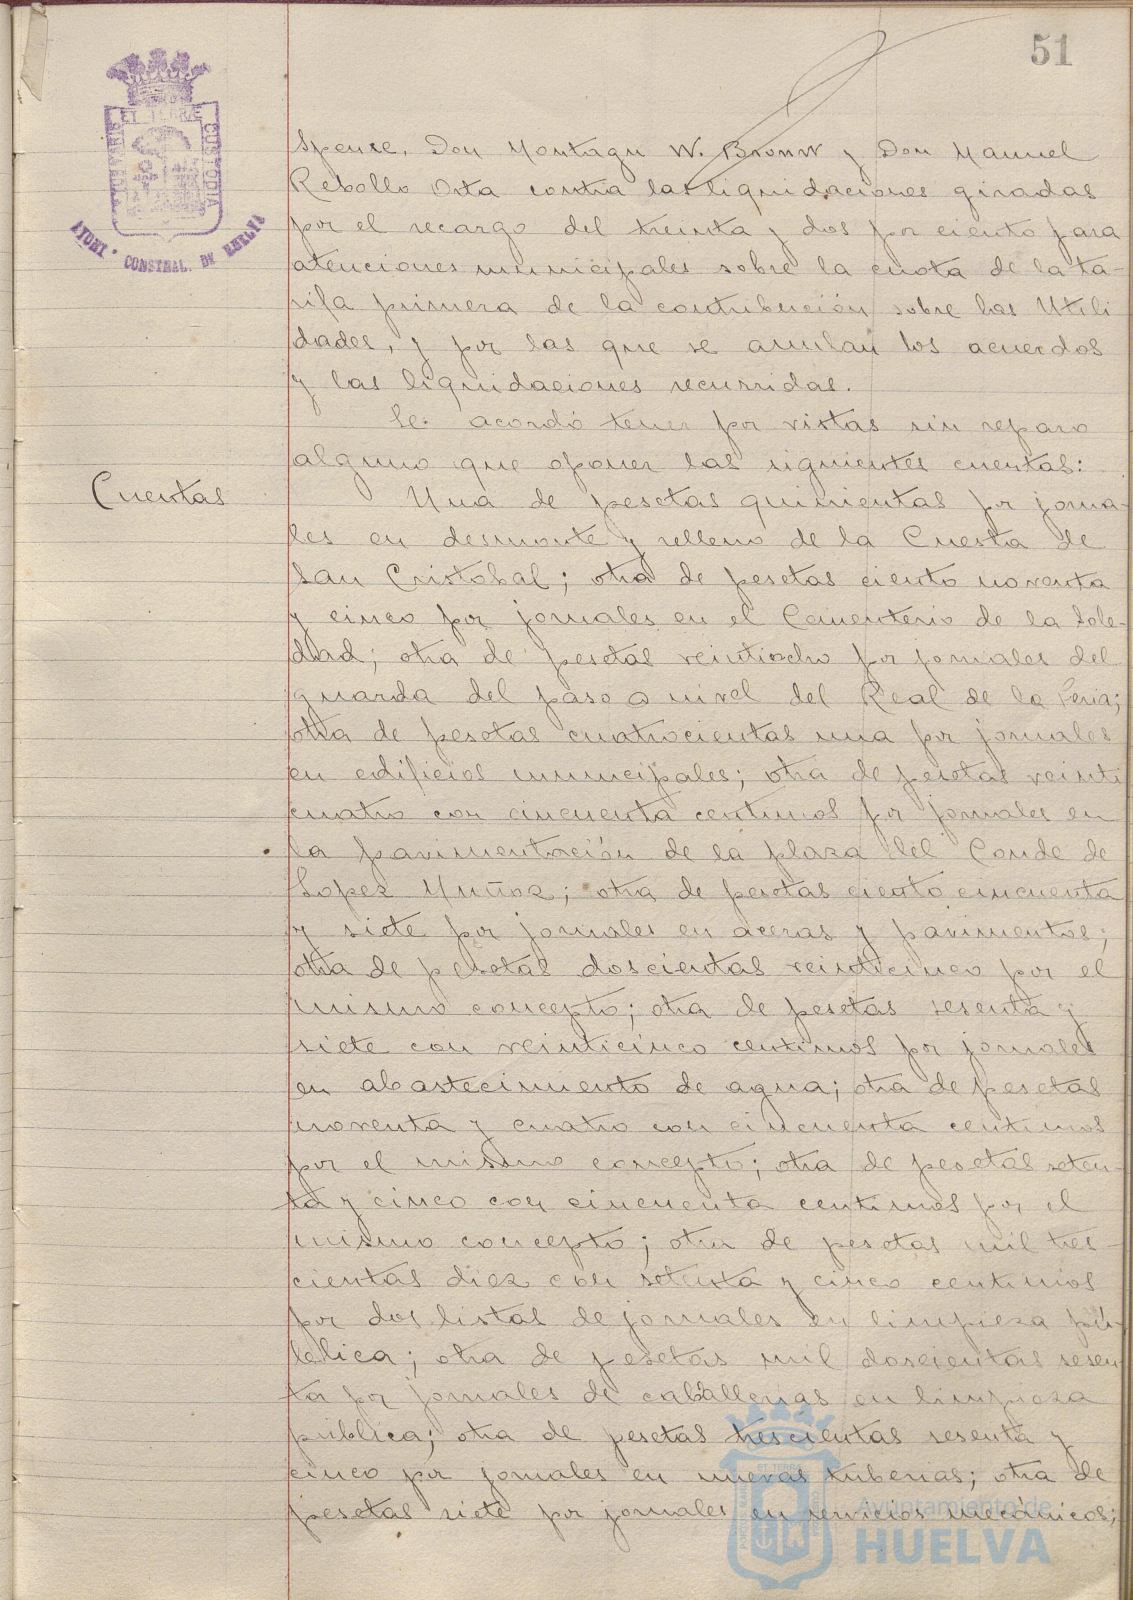 51
Spence, Don Montagu W. Brown y Don Manuel
Rebollo Orta contra las liquidaciones giradas
por el recargo del treinta y dos por ciento para
atenciones municipales sobre la cuota de la ta-
rifa primera de la contribución sobre las Utili
dades, y por las que se anulan los acuerdos
y las liquidaciones recurridas.
Se acordó tener por vistas sin reparo
alguno que oponer las siguientes cuentas:
Cuentas
Una de pesetas quinientas por jorna-
les en desmonte y relleno de la Cuesta de
San Cristobal; otra de pesetas ciento noventa
y cinco por jornales en el Cementerio de la Sole-
dad; otra de pesetas veintiocho por jornales del
guarda del paso a nivel del Real de la Feria;
otra de pesetas cuatrocientas una por jornales
en edificios municipales; otra de pesetas veinti
cuatro con cincuenta centimos por jornales en
la pavimentación de la plaza del Conde de
Lopez Muñoz; otra de pesetas ciento cincuenta
y siete por jornales en aceras y pavimentos;
otra de pesetas doscientas veinticinco por el
mismo concepto; otra de pesetas sesenta y
siete con veinticinco centimos por jornales
en abastecimiento de agua; otra de pesetas
noventa y cuatro con cincuenta centimos
por el mismo concepto; otra de pesetas seten-
ta y cinco con cincuenta centimos por el
mismo concepto; otra de pesetas mil tres-
cientas diez con setenta y cinco centimos
por dos listas de jornales en limpieza pú-
blica; otra de pesetas mil doscientas sesen-
ta por jornales de caballerias en limpieza
publica; otra de pesetas trescientas sesenta y
cinco por jornales en nuevas tuberias; otra de
pesetas siete por jornales en servicios mecánicos;
AYUNT. CONSTNAL. DE HUELVA
Ayuntamiento de
HUELVA